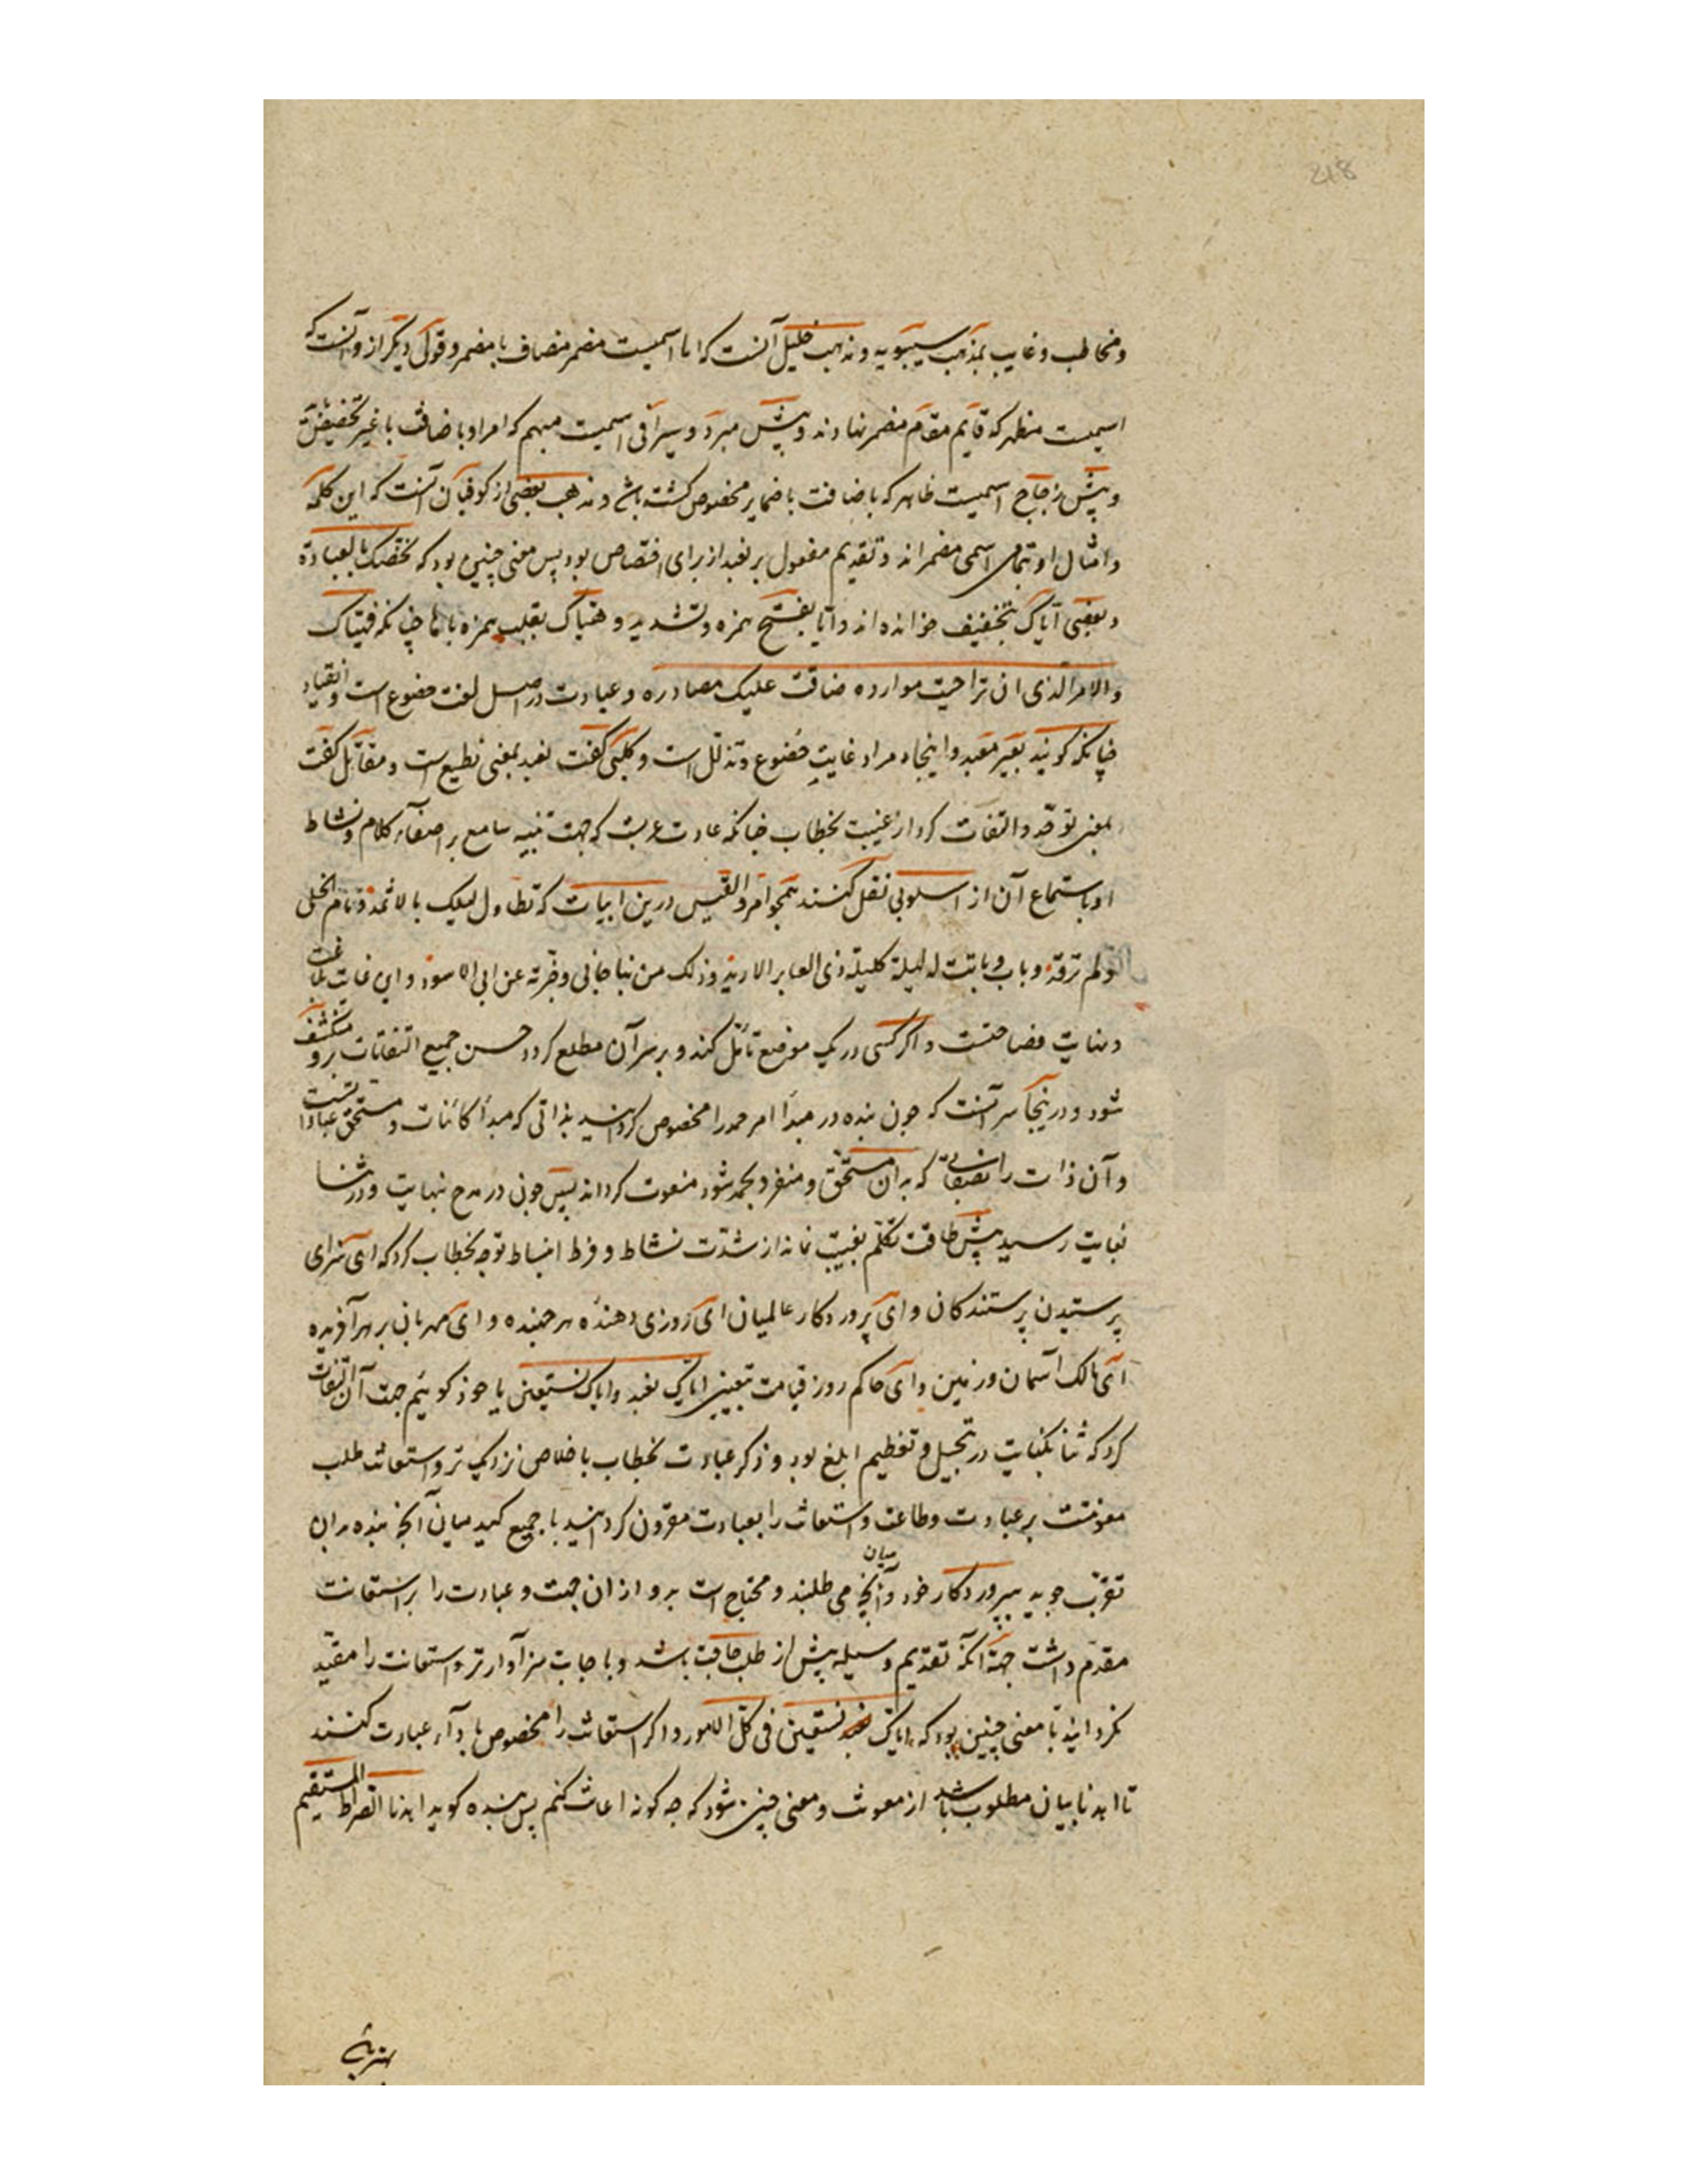 218
و مخاطب و غایب بمذهب سیبویه و مذهب خلیل آنست که ایا اسمیست مضمر مضاف با مضمر و قولی دیگر ازو آنست که
اسمیست مظهر که قایم مقام مضمر نهادند و پیش مبرد و سیرافی اسمیست مبهم که امرا و باضافت با غیر تخصیص
و پیش زجاج اسمیست ظاهر که باضافت باضمایر مخصوص کشته باشد و مذهب بعضی از کوفیان آنست که این کلمه
و امثال او بتمامی اسمی مضمراند و تقدیم مفعول بر نعبد از برای اختصاص بود پس معنی چنین بود که نخصک بالعبادة
و بعضی ایاک بتخفیف خوانده اند و ایا بفتح همزه و تشدید و هیاک بقلب همزه با ها چنانکه فهیاک
والامر الذی ان تراحبت موارده ضاقت علیک مصادره و عبادت در اصل لغت خضوع است و انقیاد
چنانکه کویند بعیر معبد و اینجا مراد غایت خضوع و تذلل است و کلبی کفت نعبد بمعنی نطیع است و مقاتل کفت
بمعنی نوحد و التفات کرد از غیبت بخطاب چنانکه عادت عربست که جهت تنبیه سامع بر اصغاء کلام و نشاط
او باستماع آن از اسلوبی نقل کنند همچو امرؤ القیس درین ابیات که تطاول لیلک بالاثمد و نام الخلی
ولم ترقد و بات و باتت له لیلة کلیلة ذی العایر الارمد و ذلک من نبا جانی و خبرته عن ابی الاسود و این غایت
و نهایت فصاحتست و اکر کسی در یک موضع تامل کند و بر سر آن مطلع کردد حسن جمیع التفاتات برو منکشف
شود و در اینجا سر آنست که چون بنده در مبدأ امر حمد را مخصوص کردانید بذاتی که مبدأ کائنات و مستحق عبادات
و آن ذات را بصفاتی که بدان مستحق و منفرد بحمد شود منعوت کرداند پس چون در مدح نهایت و در ثنا
بغایت رسید پیش طاقت تکلم بغیبت نماند از شدت نشاط و فرط انبساط توجه بخطاب کرد که ای سزای
پرستیدن پرستندکان و ای پروردکار عالمیان ای روزی دهنده هر جنبنده و ای مهربان بر هر آفریده
ای مالک آسمان و زمین و ای حاکم روز قیامت بتعیین ایاک نعبد و ایاک نستعین یا خود کوئیم جهت آن التفات
کرد که ثنا بکنایت در تبجیل و تعظیم ابلغ بود و ذکر عبادت بخطاب باخلاص نزدیک تر و استعانت طلب
معونتست بر عبادت و طاعت و استعانت را بعبادت مقرون کردانید تا جمیع کنید میان آنچه بنده بدان
تقرب جوید بپروردکار خود و میان آنچه می طلبند و محتاج است بدو از ان جهت و عبادت را بر استعانت
مقدم داشت جهة آنکه تقدیم وسیله پیش از طلب حاجت باشد و باجابت سزاوارتر و استعانت را مقید
نکردانید تا معنی چنین بود که ایاک نستعین فی کل الامور و اکر استعانت را مخصوص باداء عبادت کنند
تا اهدنا بیان مطلوب باشد از معونت و معنی چنین شود که چه کونه اعانت کنم پس بنده کوید اهدنا الصراط المستقیم